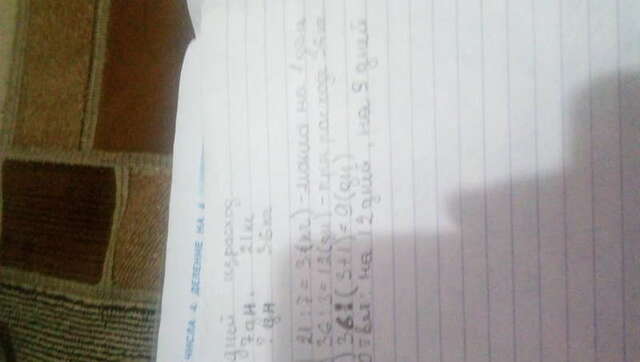 ЧИСЛА 4. ДЕЛЕНИЕ НА 4
дней израсход.
7дн. 21кг
? дн 36кг
21 : 7 = 3 (кг) - на 1 день
36 : 3 = 12 (дн) - при расход 36 кг
) 36 : ( 3+1 ) = 9 (дн)
Ответ: на 12 дней, на 9 дней